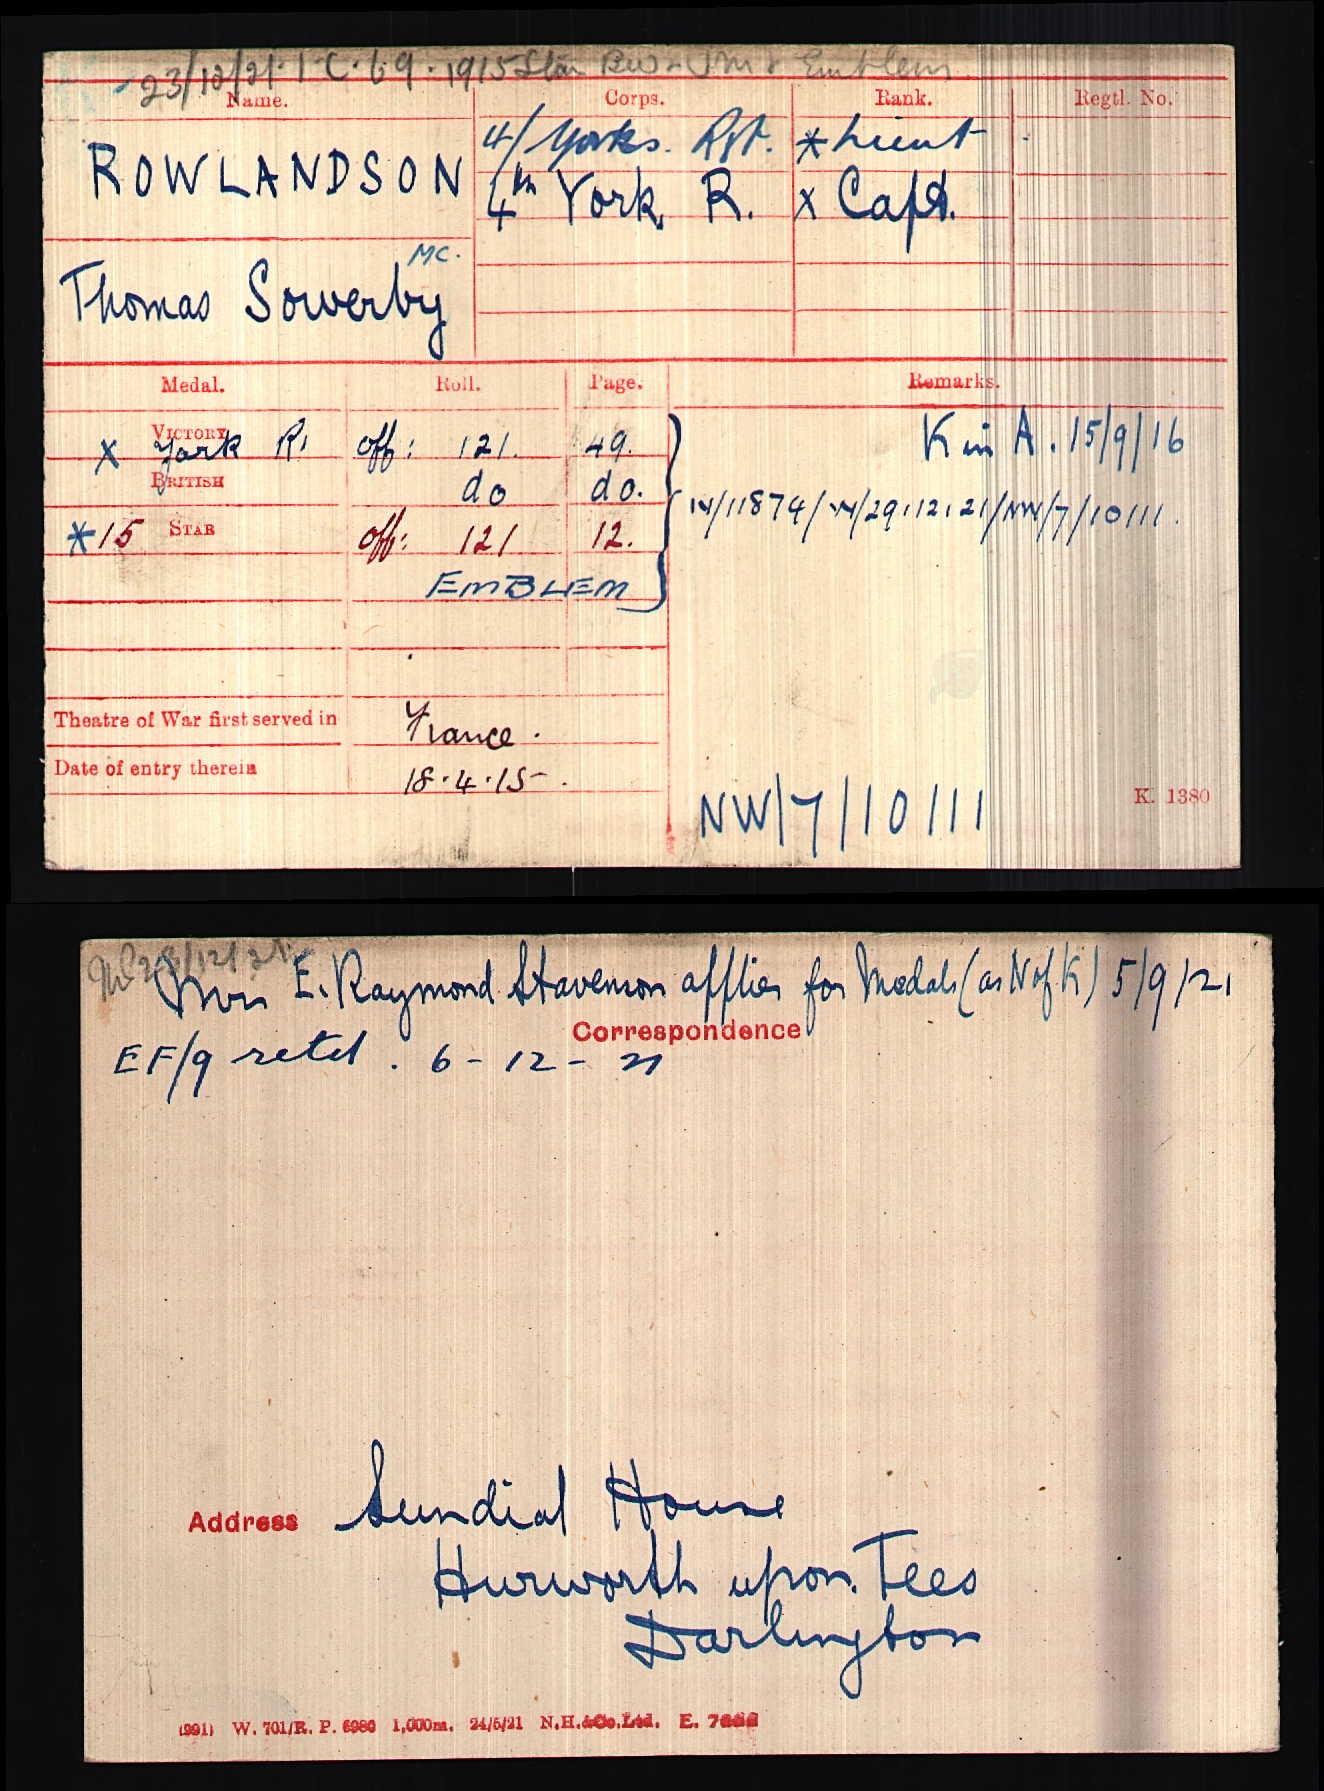 23/12/21. I.C. 69. 1915 Star BW & VM & Emblem
Name. Corps. Rank. Regtl. No.
ROWLANDSON
4/ Yorks. Rgt. * Lieut
4th York. R. x Capt.
MC.
Thomas Sowerby
Medal. Roll. Page. Remarks.
VICTORY
x York R. off: 121. 49. K in A. 15/9/16
BRITISH do do.
NW/7/10111.
*15 STAR off: 121 12.
EMBLEM
Theatre of War first served in France.
Date of entry therein 18.4.15.
NW/7/10111
K. 1380
23/12/21
Mrs E. Raymond Stavenson applies for Medals (as N of K) 5/9/21
Correspondence
EF/9 retd. 6-12-21
Address Sundial House
Hurworth upon. Tees
Darlington
(991) W. 701/R. P. 6980 1,000m. 24/5/21 N.H.&Co.Ltd. E.